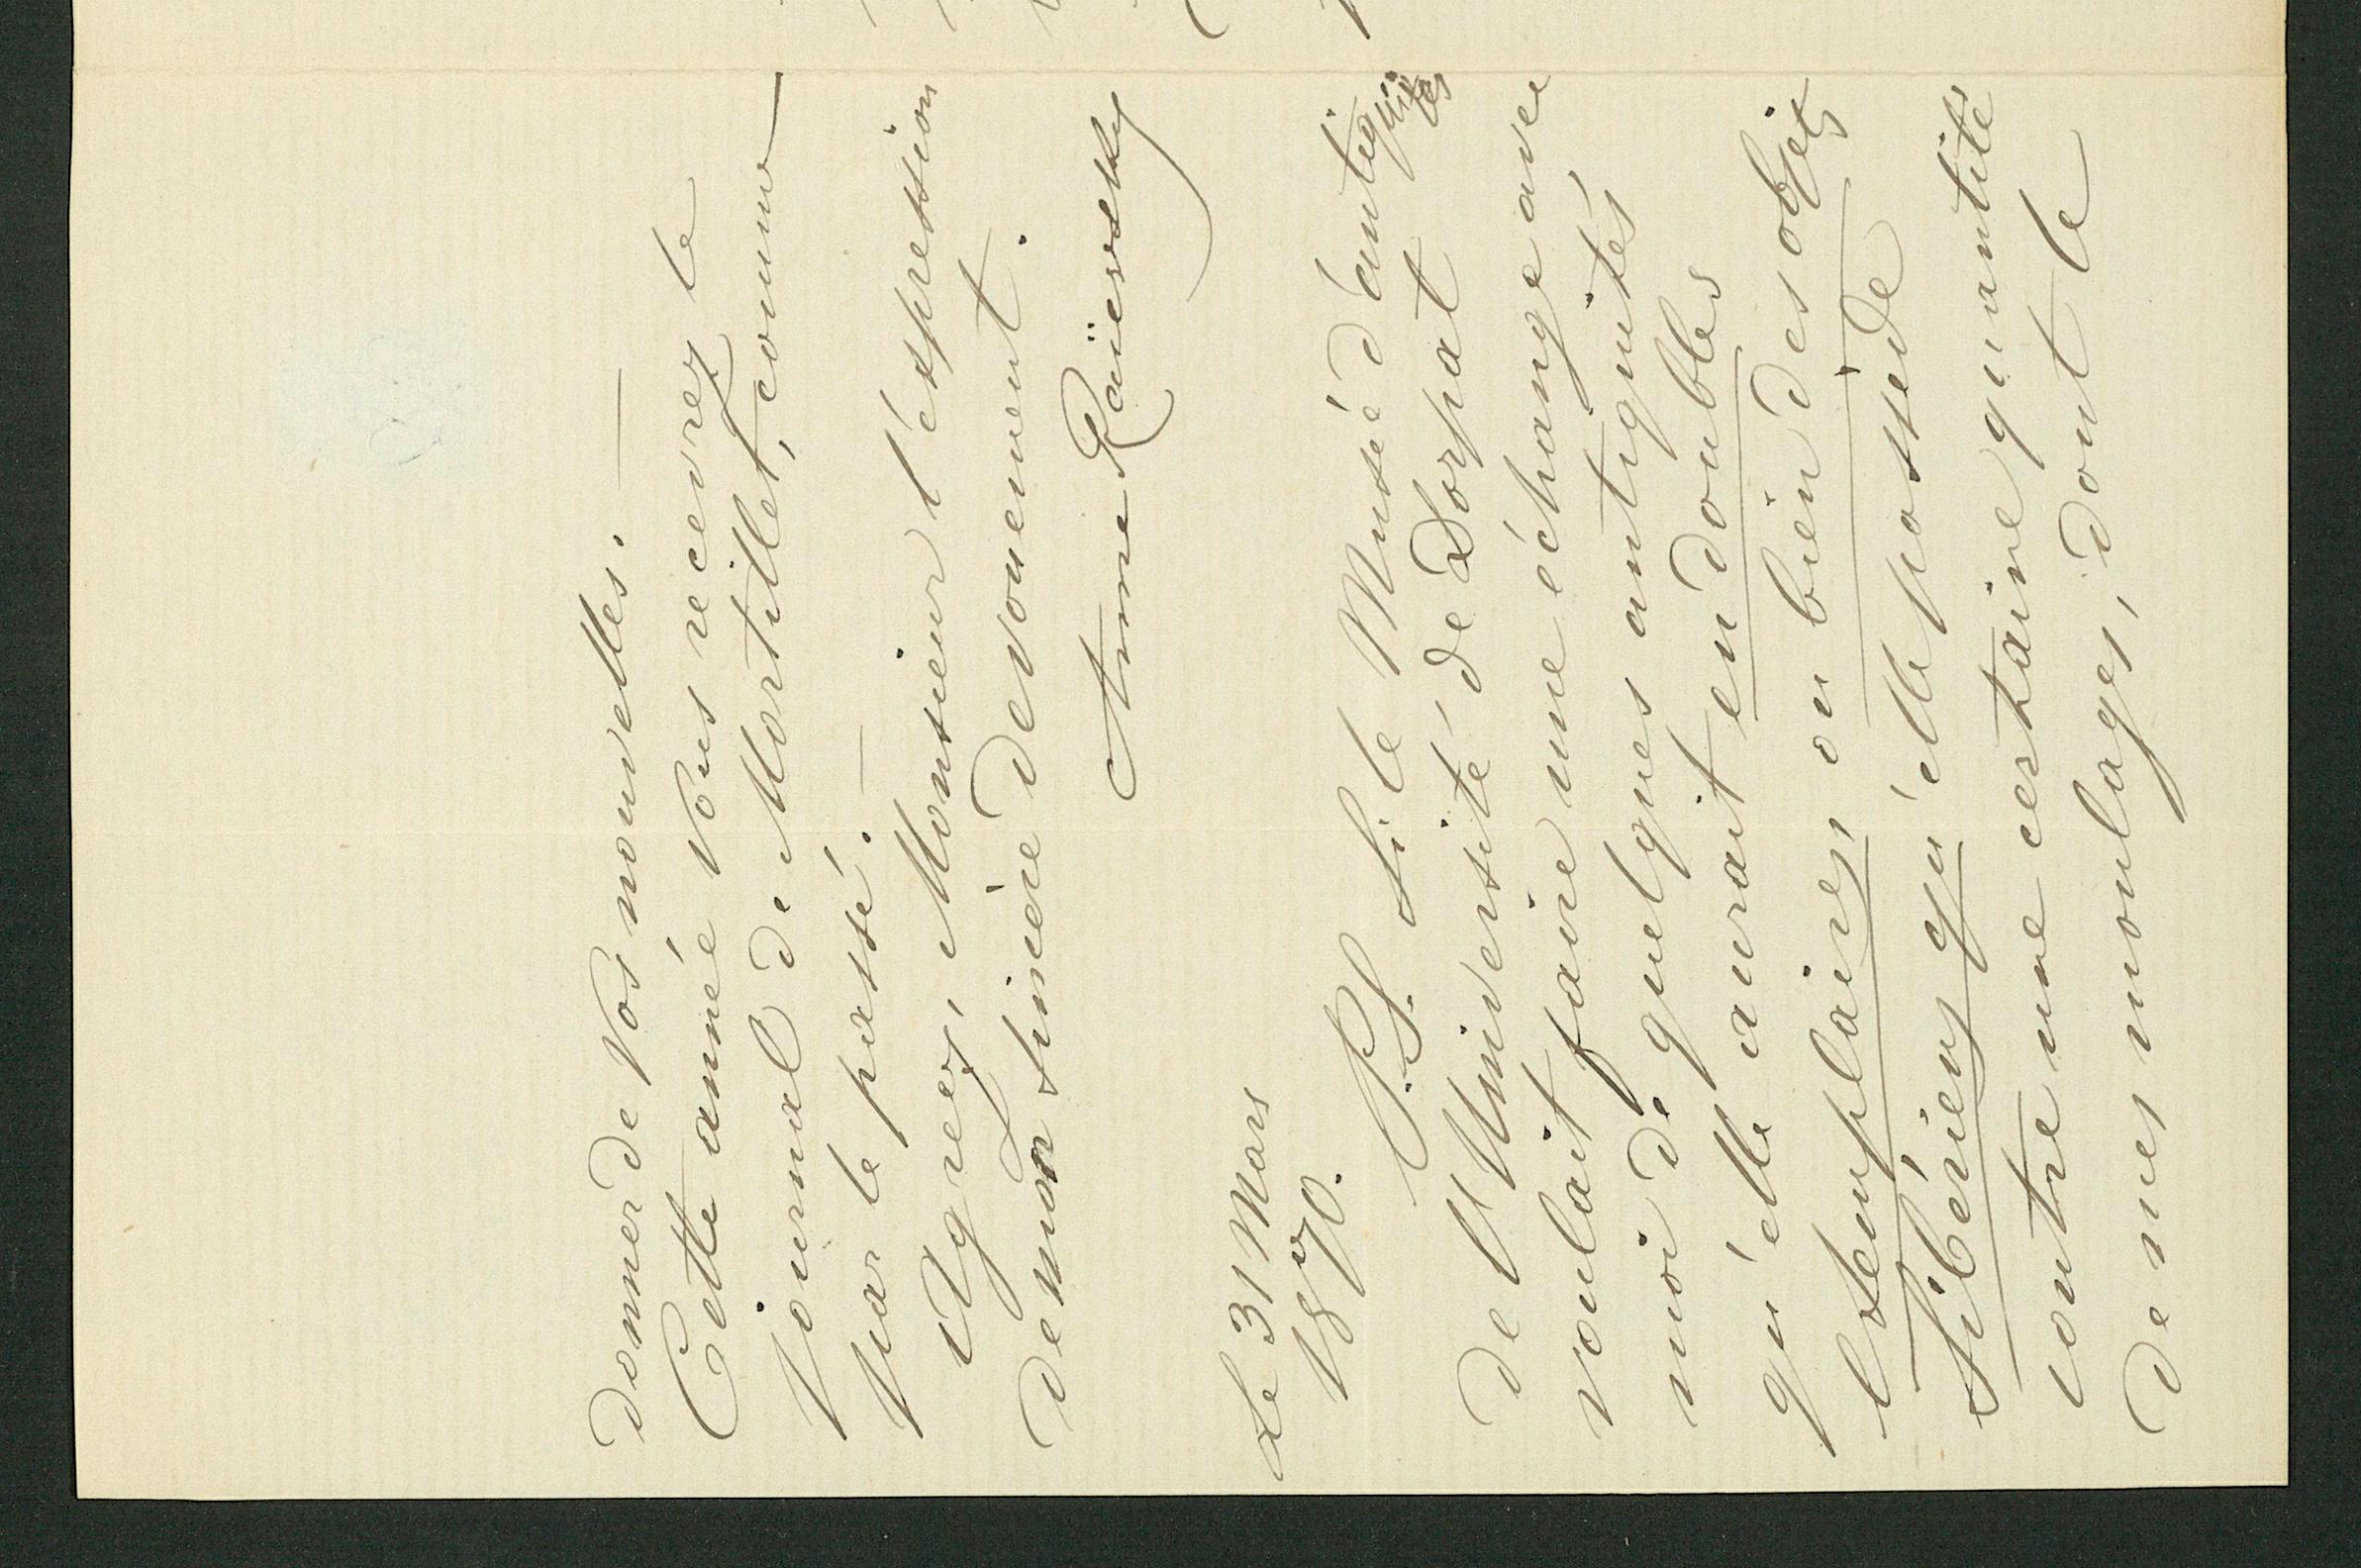 donner de Vos nouvelles. —
Cette année Vous recevrez le
journal de Mortillet, comme
par le passé. —
Agreez, Monsieur l'éxpression
de mon sincère devouement.
Anne Raïewsky
Le 31 Mars
1870.
P.S. Si le Museé d'antiquités
de l'Université de Dorpat
voulait faire une échange avec
moi de quelques antiquités
qu'elle aurait en doubles
exemplaires, ou bien des objets
Sibériens qu'elle possède
contre une certaine quantité
de mes moulages, dont le